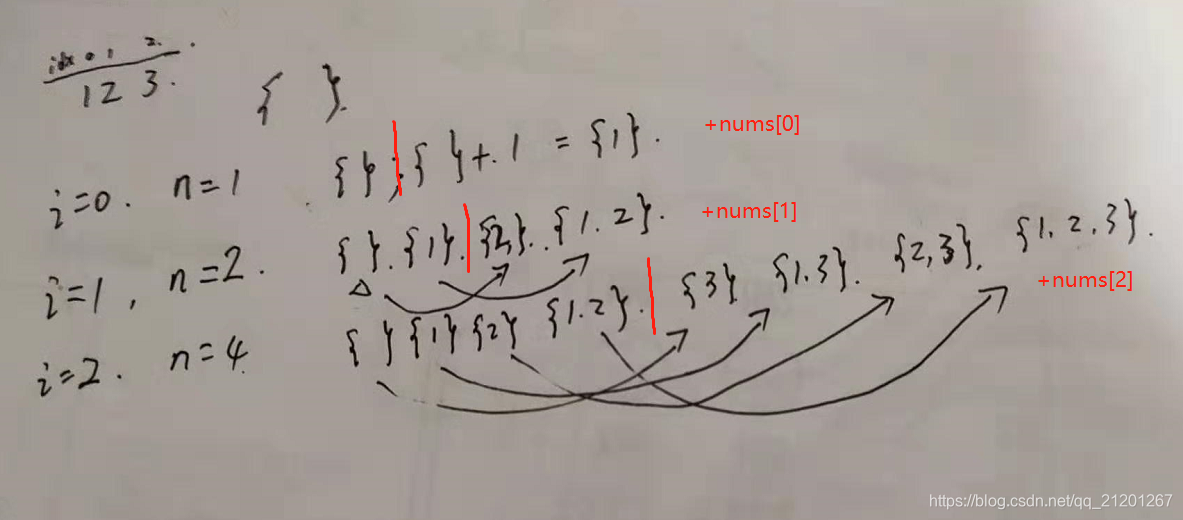 idx 0 1 2.
1 2 3.
{ }.
i=0. n=1 { } ; { }+. 1 = {1}. +nums[0]
i=1, n=2. { }. {1}. {2}. {1. 2}. +nums[1]
i=2. n=4 { } {1} {2} {1.2}. {3} {1.3}. {2,3}. {1. 2, 3}. +nums[2]
https://blog.csdn.net/qq_21201267